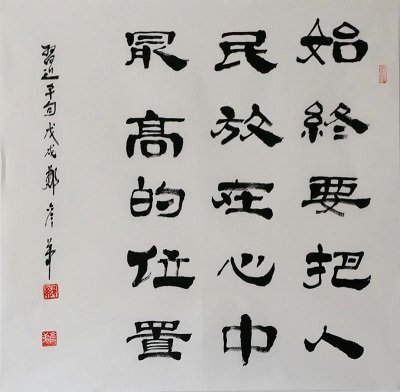 始終要把人
民放在心中
最高的位置
習近平句戊戌鄭彦芹